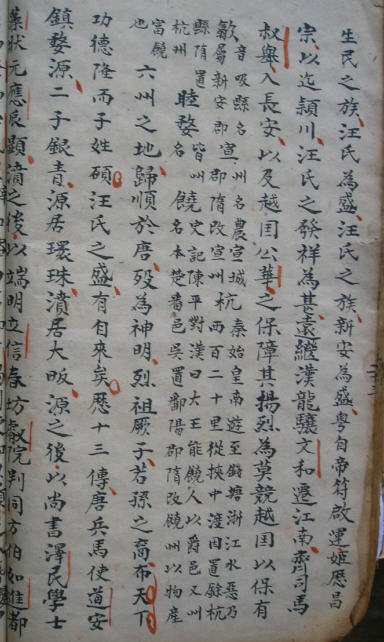 生民之族汪氏為盛汪氏之族新安為盛粵自帝符啟運姬厯昌
宗以迄潁川汪氏之發祥為甚遠繼漢龍驤文和遷江南齊司馬
叔舉入長安以及越囯公華之保障其揚烈為莫競越囯以保有
歙音吸縣名屬新安郡宣州名農宣城郡隋改宣州杭秦始皇南遊至錢塘浙江水惡乃西百二十里從狹中渡因置餘杭
縣隋置杭州睦名皆州婺名饒史記陳平對漢曰大王能饒人以爵邑又州名本楚番邑吳置鄱陽郡隋改饒州以物產
富饒也六州之地歸順於唐歿為神明烈祖厥子若孫之裔布天下
功德隆而子姓碩汪氏之盛有自來矣厯十三傳唐兵馬使道安
鎮婺源二子銀青源居環珠濆居大畈源之後以尚書澤民學士
藻狀元應辰顯濆之後以端明立信春坊叡院判同方伯如惟都